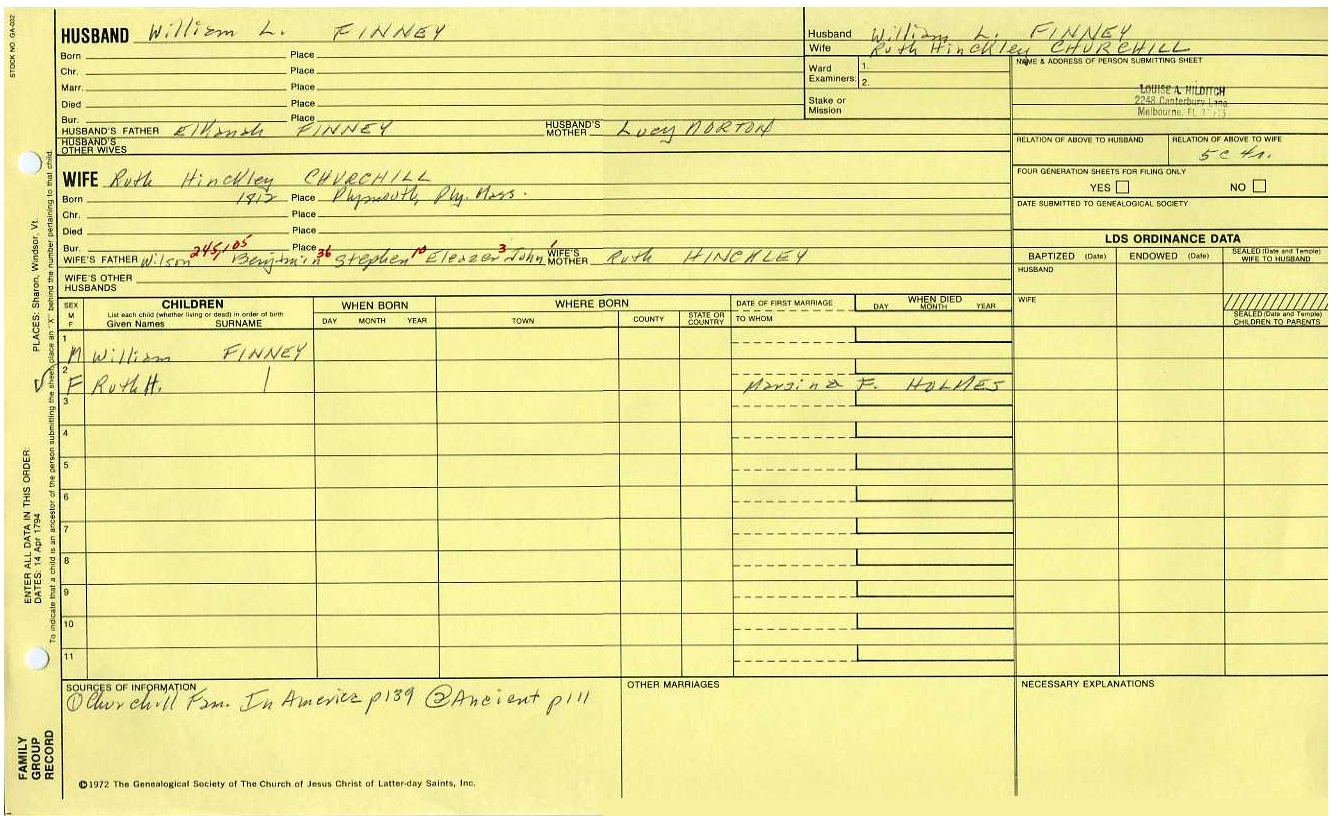 STOCK NO. GA-032
HUSBAND William L. FINNEY
Born Place
Chr. Place
Marr. Place
Died Place
Bur. Place
HUSBAND'S FATHER Elkanah FINNEY HUSBAND'S MOTHER Lucy NORTON
HUSBAND'S OTHER WIVES
Husband William L. FINNEY
Wife Ruth Hinckley CHURCHILL
Ward Examiners: 1. 2.
Stake or Mission
NAME & ADDRESS OF PERSON SUBMITTING SHEET
LOUISE A. HILDITCH
2248 Canterbury Lane
Melbourne, FL
RELATION OF ABOVE TO HUSBAND RELATION OF ABOVE TO WIFE
5c 4r.
FOUR GENERATION SHEETS FOR FILING ONLY
YES NO
DATE SUBMITTED TO GENEALOGICAL SOCIETY
WIFE Ruth Hinckley CHURCHILL
Born 1812 Place Plymouth, Ply. Mass.
Chr. Place
Died Place
Bur. Place
WIFE'S FATHER Wilson 245,105 Benjamin 36 Stephen 10 Eleazer 3 John 1 WIFE'S MOTHER Ruth HINCKLEY
WIFE'S OTHER HUSBANDS
LDS ORDINANCE DATA
BAPTIZED (Date) ENDOWED (Date) SEALED (Date and Temple) WIFE TO HUSBAND
HUSBAND
WIFE
SEALED (Date and Temple) CHILDREN TO PARENTS
SEX M F
CHILDREN
List each child (whether living or dead) in order of birth
Given Names SURNAME
WHEN BORN
DAY MONTH YEAR
WHERE BORN
TOWN COUNTY STATE OR COUNTRY
DATE OF FIRST MARRIAGE
TO WHOM
WHEN DIED
DAY MONTH YEAR
1
M William FINNEY
2
F Ruth H. | Marsina F. HOLMES
3
4
5
6
7
8
9
10
11
SOURCES OF INFORMATION
① Churchill Fam. In America p139 ② Ancient p111
OTHER MARRIAGES
NECESSARY EXPLANATIONS
©1972 The Genealogical Society of The Church of Jesus Christ of Latter-day Saints, Inc.
FAMILY GROUP RECORD
ENTER ALL DATA IN THIS ORDER:
DATES: 14 Apr 1794
PLACES: Sharon, Windsor, Vt.
To indicate that a child is an ancestor of the person submitting the sheet, place an "X" behind the number pertaining to that child.